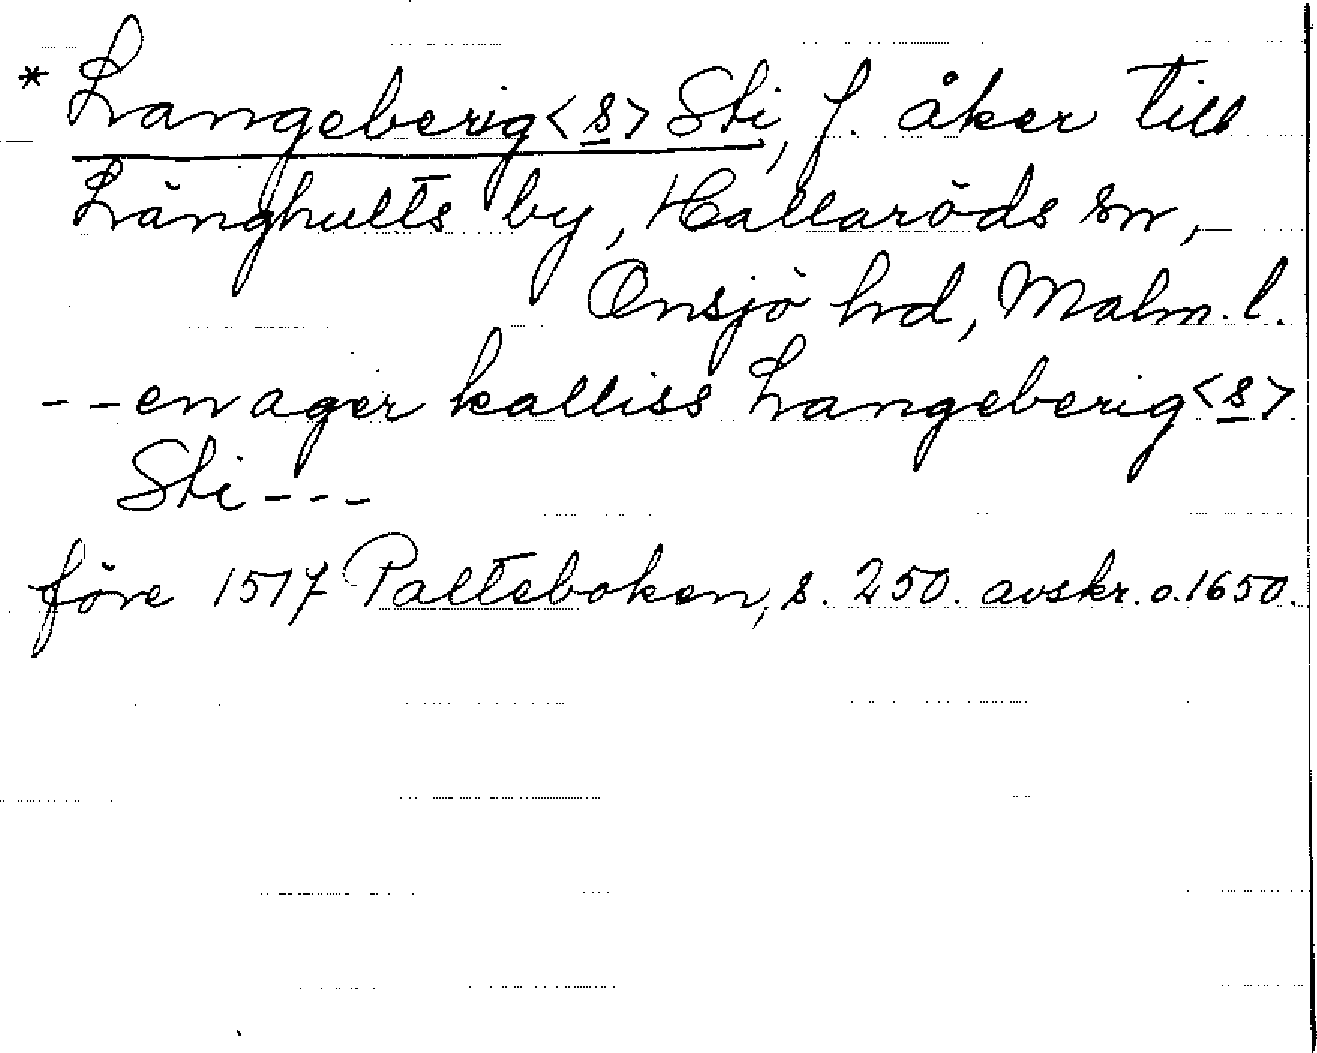 * Langeberig<s> Sti, f. åker till
Långhults by, Hallaröds sn,
Onsjö hd, Malm. l.
- - en ager kalliss Langeberig<s>
Sti - - -
före 1517 Palteboken, s. 250. avskr. o. 1650.